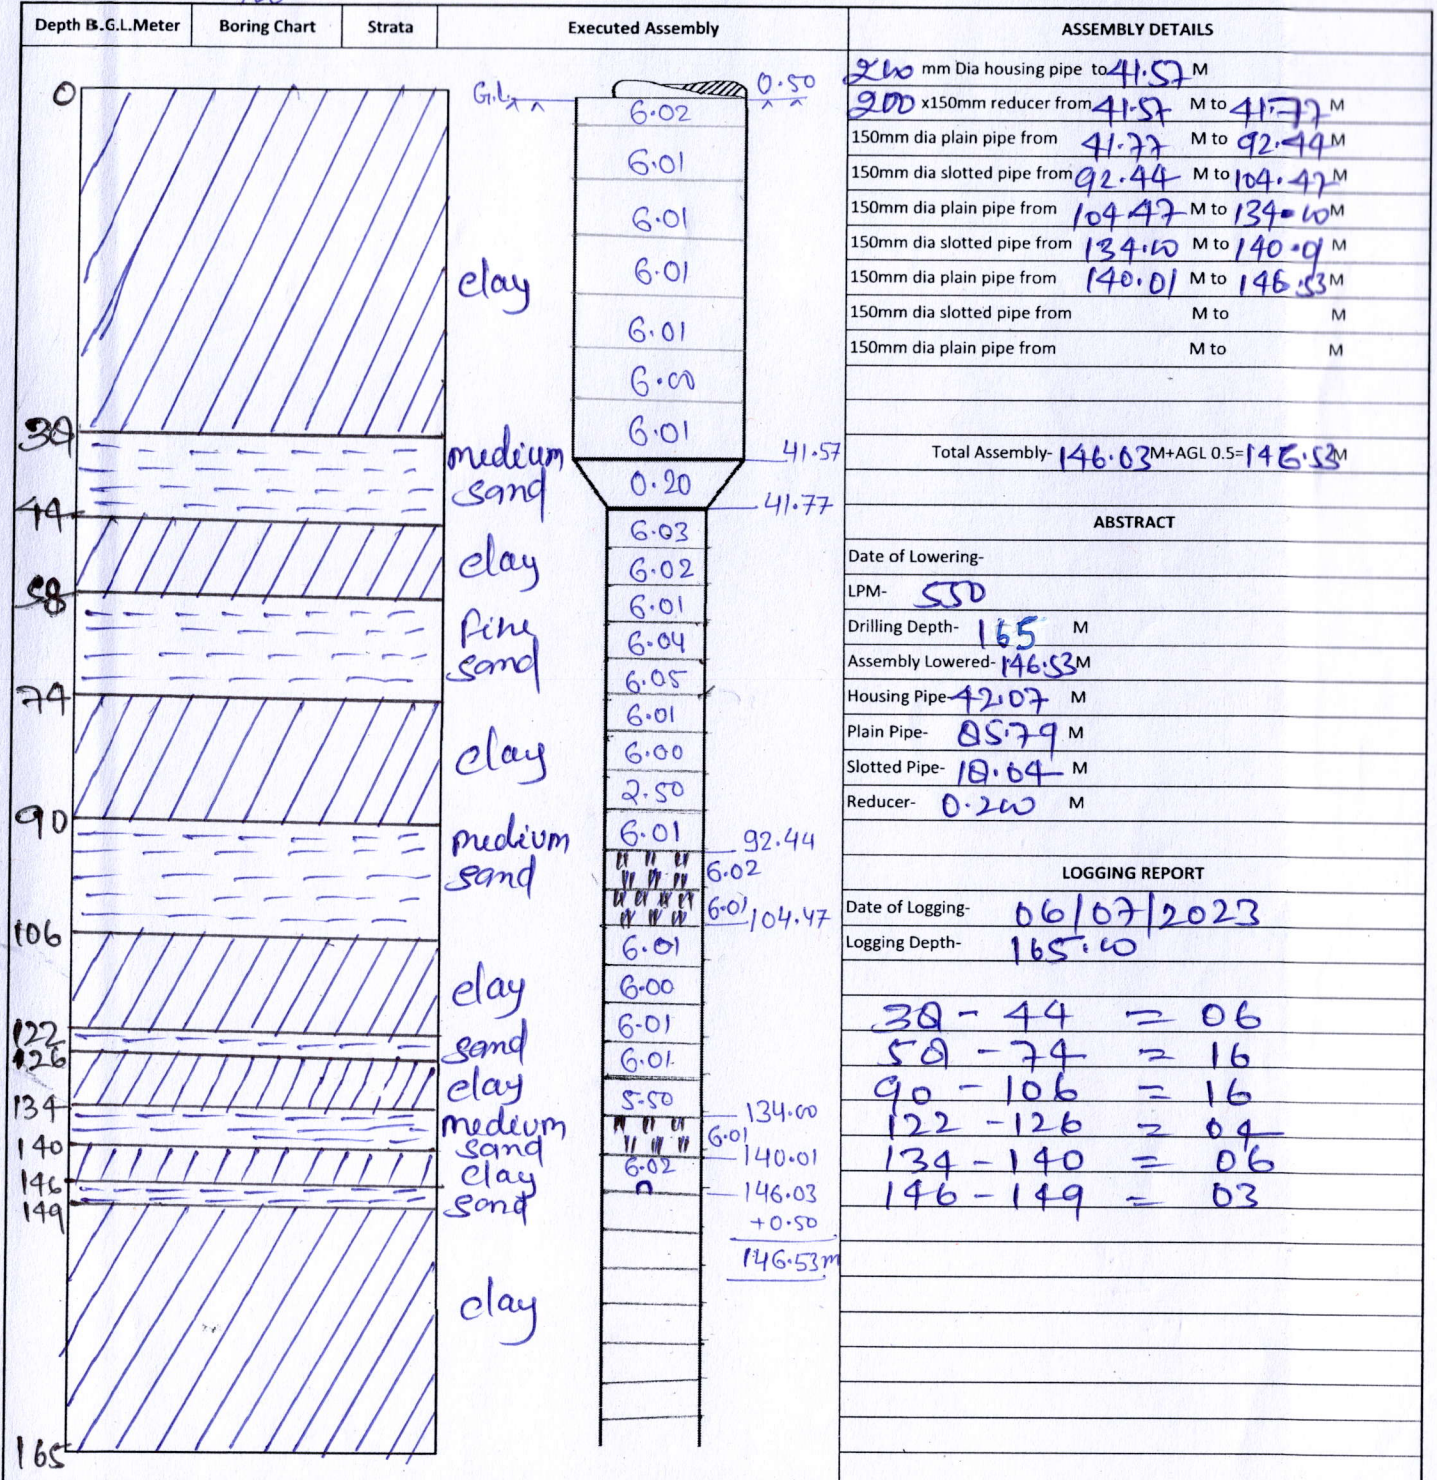 Depth B.G.L.Meter Boring Chart Strata Executed Assembly ASSEMBLY DETAILS
0
38
44
58
74
90
106
122
126
134
140
146
149
165
clay
medium
sand
clay
fine
sand
clay
medium
sand
clay
sand
clay
medium
sand
clay
sand
clay
G.L. 0.50
6.02
6.01
6.01
6.01
6.01
6.00
6.01
41.57
0.20
41.77
6.03
6.02
6.01
6.04
6.05
6.01
6.00
2.50
6.01
92.44
6.02
6.01
104.47
6.01
6.00
6.01
6.01
5.50
134.00
6.01
140.01
6.02
146.03
+0.50
146.53m
200 mm Dia housing pipe to 41.57 M
200 x150mm reducer from 41.57 M to 41.77 M
150mm dia plain pipe from 41.77 M to 92.44 M
150mm dia slotted pipe from 92.44 M to 104.47 M
150mm dia plain pipe from 104.47 M to 134.00 M
150mm dia slotted pipe from 134.00 M to 140.01 M
150mm dia plain pipe from 140.01 M to 146.53 M
150mm dia slotted pipe from M to M
150mm dia plain pipe from M to M
Total Assembly- 146.03 M+AGL 0.5= 146.53 M
ABSTRACT
Date of Lowering-
LPM- 550
Drilling Depth- 165 M
Assembly Lowered- 146.53 M
Housing Pipe- 42.07 M
Plain Pipe- 85.79 M
Slotted Pipe- 18.04 M
Reducer- 0.200 M
LOGGING REPORT
Date of Logging- 06/07/2023
Logging Depth- 165.00
38 - 44 = 06
58 - 74 = 16
90 - 106 = 16
122 - 126 = 04
134 - 140 = 06
146 - 149 = 03